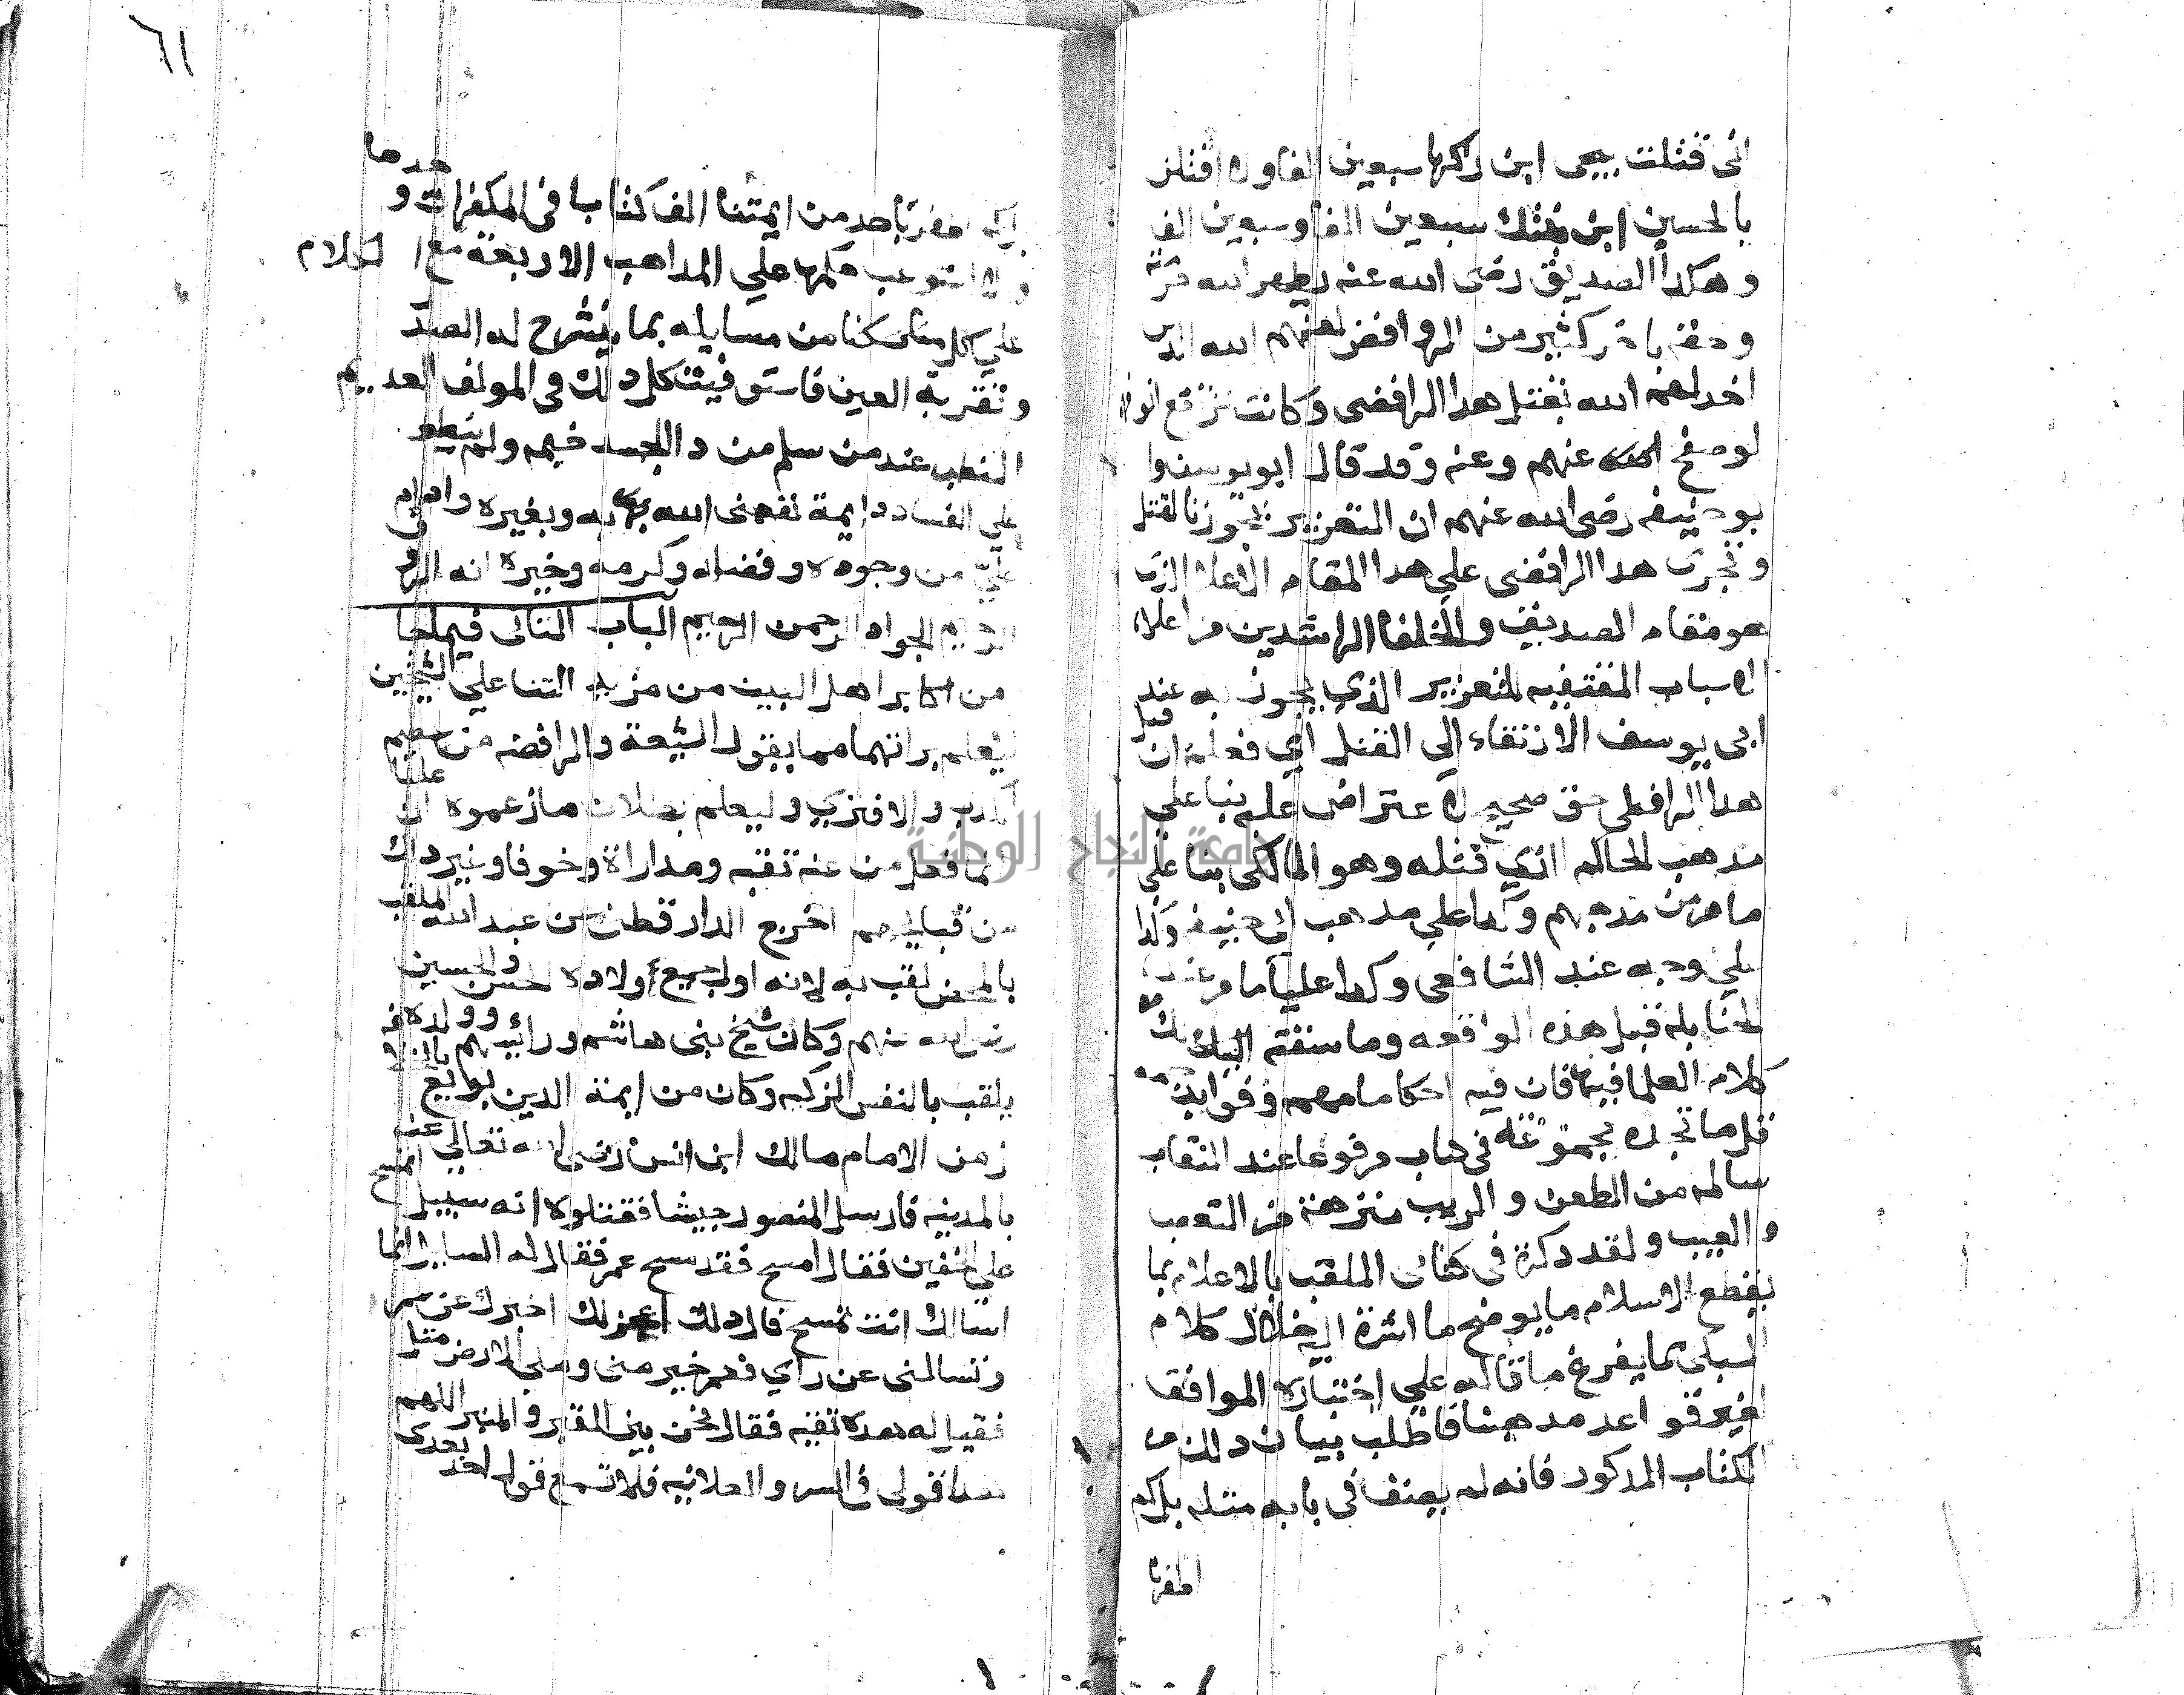 اني قتلت بيحى ابن زاكريا سبعين الفا ولاقتلن
بالحسين ابن بنتك سبعين الفا وسبعين الف
وهكذا الصديق رضى الله عنه يطهر الله
وحقه باخر كثير من الروافض لعنهم الله الدين
اخدلهم الله بقتل هدا الرافضى وكانت ترتفع انوفهم
لو صفح عنهم وعنه وقد قال ابو يوسف
بو حنيفه رضى الله عنهم ان التعزير يجوز بالقتل
وتجرى هدا الرافضى على هدا المقام الاعلا الذي
هو مقام الصديق والخلفا الراشدين من اعلا
الاسباب المقتضيه للتعزير الذي يجوز به عند
ابى يوسف الارتقاء الى القتل اي فعلم ان قتل
هدا الرافضى حق صحيح لا عتراض عليه بنا على
مدهب الحاكم الذي قتله وهو المالكى بنا على
ما مر من مدهبهم وكدا على مدهب ابى حنيفه وكدا
على وجه عند الشافعى وكدا على ما مر عند
الحنابله فتبل هذه الواقعه وما سقته اليك من
كلام العلما فيها فان فيه احكاما مهمه وفوايد جمه
قل ما تجده مجموعة فى كتاب مرفوعا عند النقاب
سالمه من الطعن والريب منزهة من التعصب
والعيب ولقد دكرة فى كتابى الملقب بالاعلام بما
بقطع الاسلام ما يوضح ما اشرة اليه خلال كلام
السبكى بما يفرغ ما قاله على اختياره الموافق
لغير قواعد مدهبنا فاطلب بيان دلك من
الكتاب المدكور فانه لم يصنف فى بابه مثله بل لم
اظفر با
٦١
بل لم اظفر باحد من ايمتنا الف كتابا فى المكفرات وحدها
ولا استوعب حكمها على المداهب الاربعة مع الكلام
على كل من مسايله بما ينشرح له الصدر
وتقر به العين فاستوفيت كل دلك فى المولف العديم
النظير عند من سلم من دا الحسد فيهم ولم ينطو
على الفساد دايمة نفعنى الله به وبغيره وادام
علي من وجوده وفضله وكرمه وخيره انه الروف
الرحيم الجواد الرحمن الرحيم الباب الثانى فيما جا
من اكابر اهل البيت من مزيد الثنا على الشيخين
ليعلم براتهما مما يقول الشيعة والرافضه من
الكدب والافترى وليعلم بطلان ما زعموه ان عليا
انما فعل من عنه تقيه ومداراة وخوفا وغير دلك
من قبايحهم اخرج الدار قطنى عن عبد الله الملقب
بالمحض لقب به لانه اول جمع ولادة الحسن والحسين
رضى الله عنهم وكان شيخ بنى هاشم ورائيسهم وولده
يلقب بالنفس الزكيه وكان من ايمة الدين بويع بالخلافه
زمن الامام مالك ابن انس رضى الله تعالى عنه
بالمدينه فارسل المنصور جيشا فقتلوه انه سيل امسح
على الخفين فقال امسح فقد مسح عمر فقال له السايل انما
اسالك انت تمسح قال دلك اعجز لك اخبرك عن عمر
وتسالنى عن راي فعمر خير منى وملى الارض مثلى
فقيل له هده تقيه فقال نحن بين القبر والمنبر اللهم
هدا قولى فى السر والعلانيه فلا تسمع قول احد بعدى
جامعة النجاح الوطنية